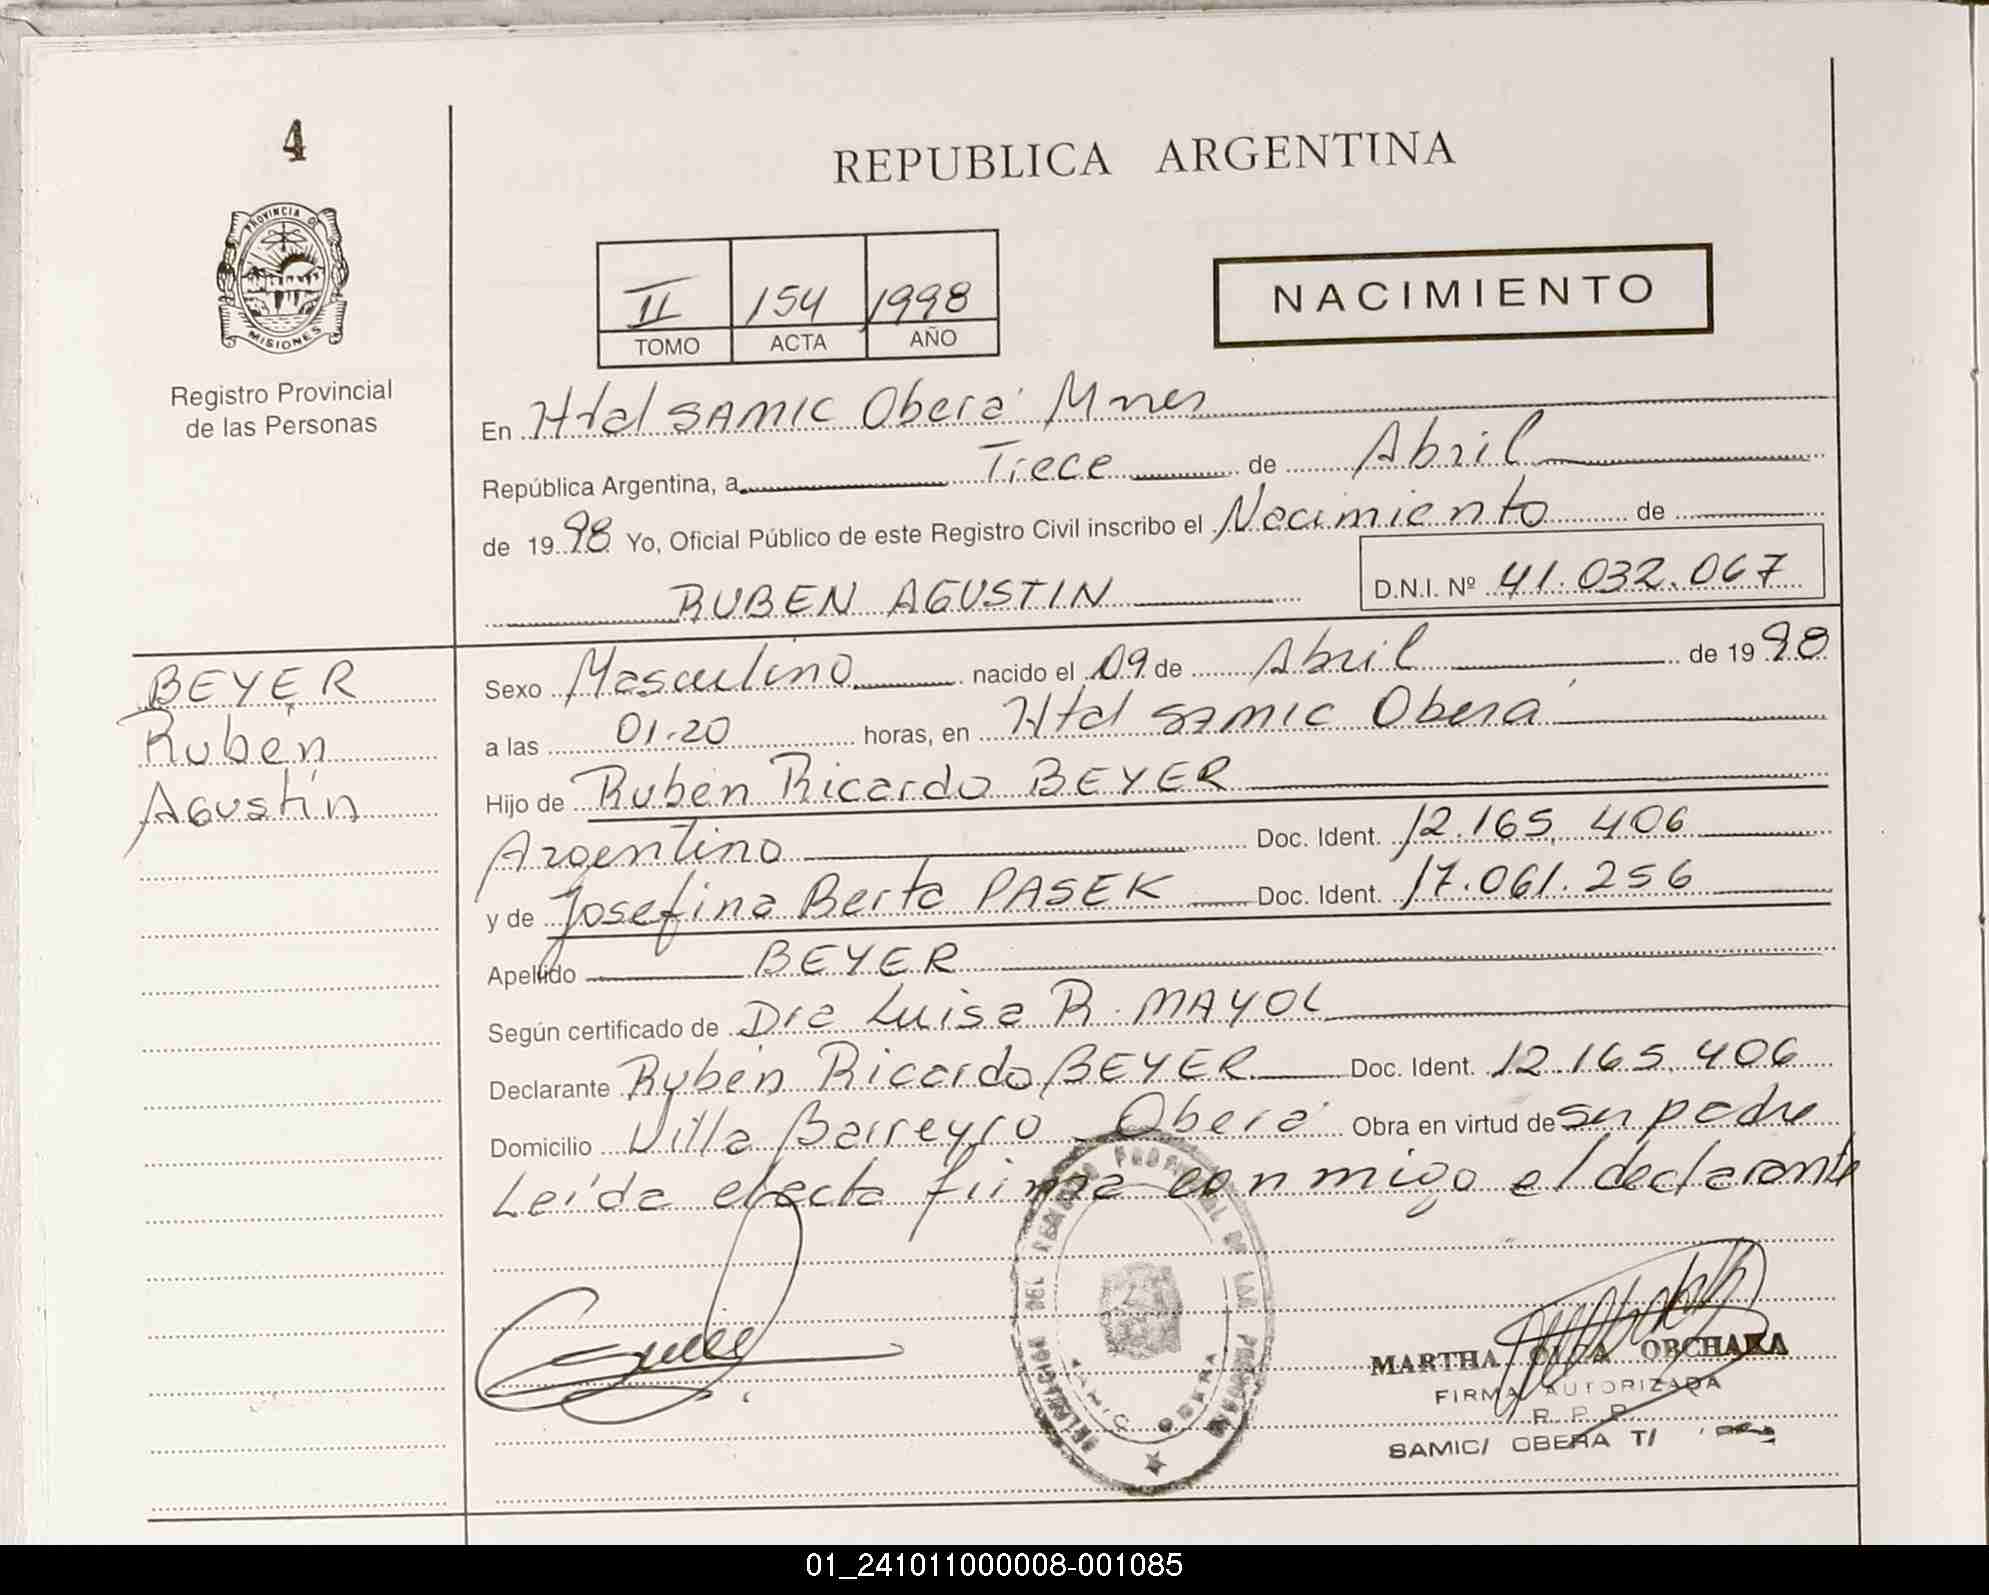 4
PROVINCIA DE
MISIONES
Registro Provincial
de las Personas
REPUBLICA ARGENTINA
II 154 1998
TOMO ACTA AÑO
NACIMIENTO
En Htal SAMIC Oberá Mnes
República Argentina, a Trece de Abril
de 1998 Yo, Oficial Público de este Registro Civil inscribo el Nacimiento de
RUBEN AGUSTIN D.N.I. Nº 41.032.067
BEYER
Rubén
Agustín
Sexo Masculino nacido el 09 de Abril de 1998
a las 01.20 horas, en Htal SAMIC Oberá
Hijo de Rubén Ricardo BEYER
Argentino Doc. Ident. 12.165.406
y de Josefina Berta PASEK Doc. Ident. 17.061.256
Apellido BEYER
Según certificado de Dra Luisa R. MAYOL
Declarante Rubén Ricardo BEYER Doc. Ident. 12.165.406
Domicilio Villa Barreyro Oberá Obra en virtud de ser padre
Leída el acta firma conmigo el declarante
DELEGACION DEL REGISTRO PROVINCIAL DE LAS PERSONAS
SAMIC OBERA
MARTHA OLGA OBCHAKA
FIRMA AUTORIZADA
R. P. P.
SAMIC/ OBERA T/
01_241011000008-001085